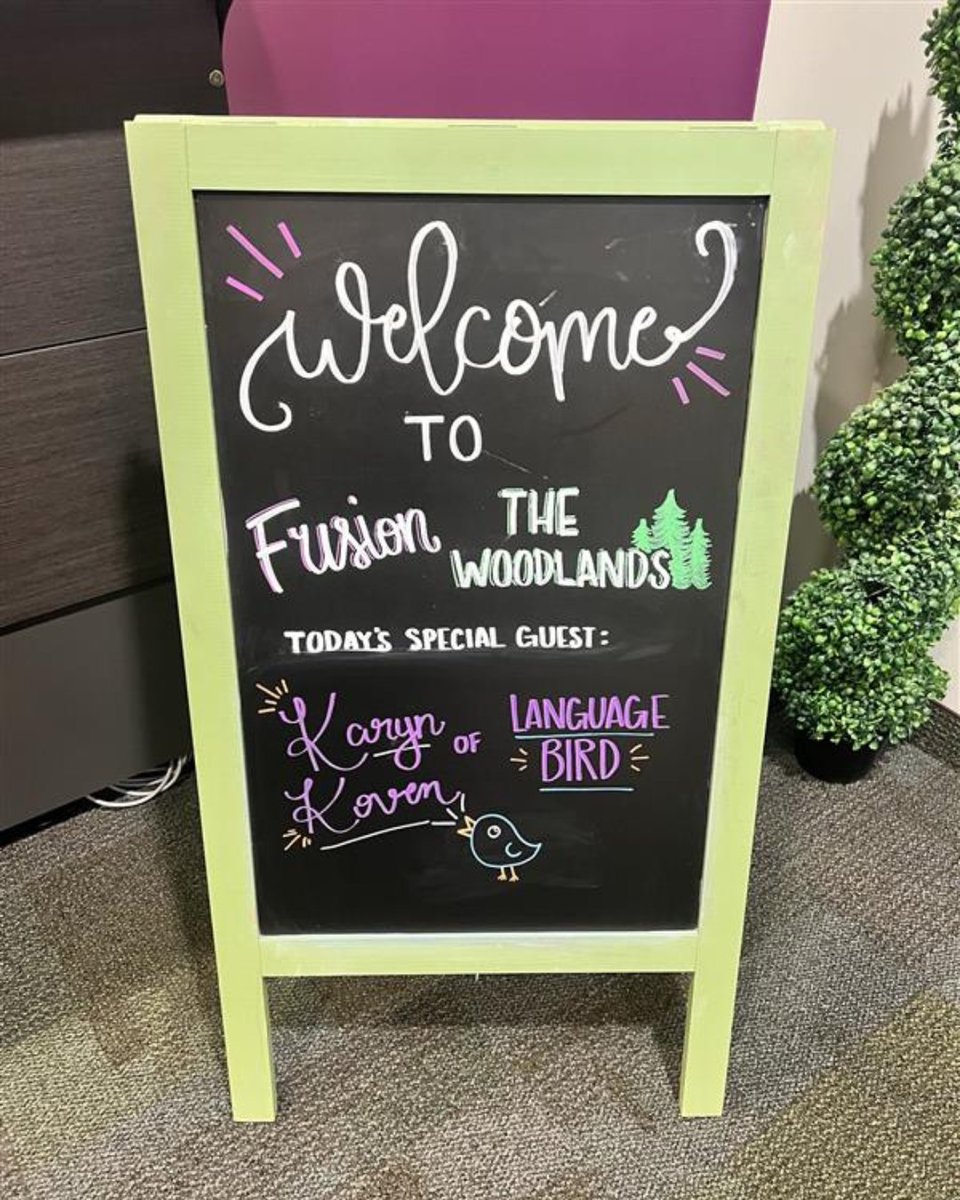 Welcome
TO
Fusion THE
WOODLANDS
TODAY'S SPECIAL GUEST:
Karyn OF LANGUAGE
Koven BIRD